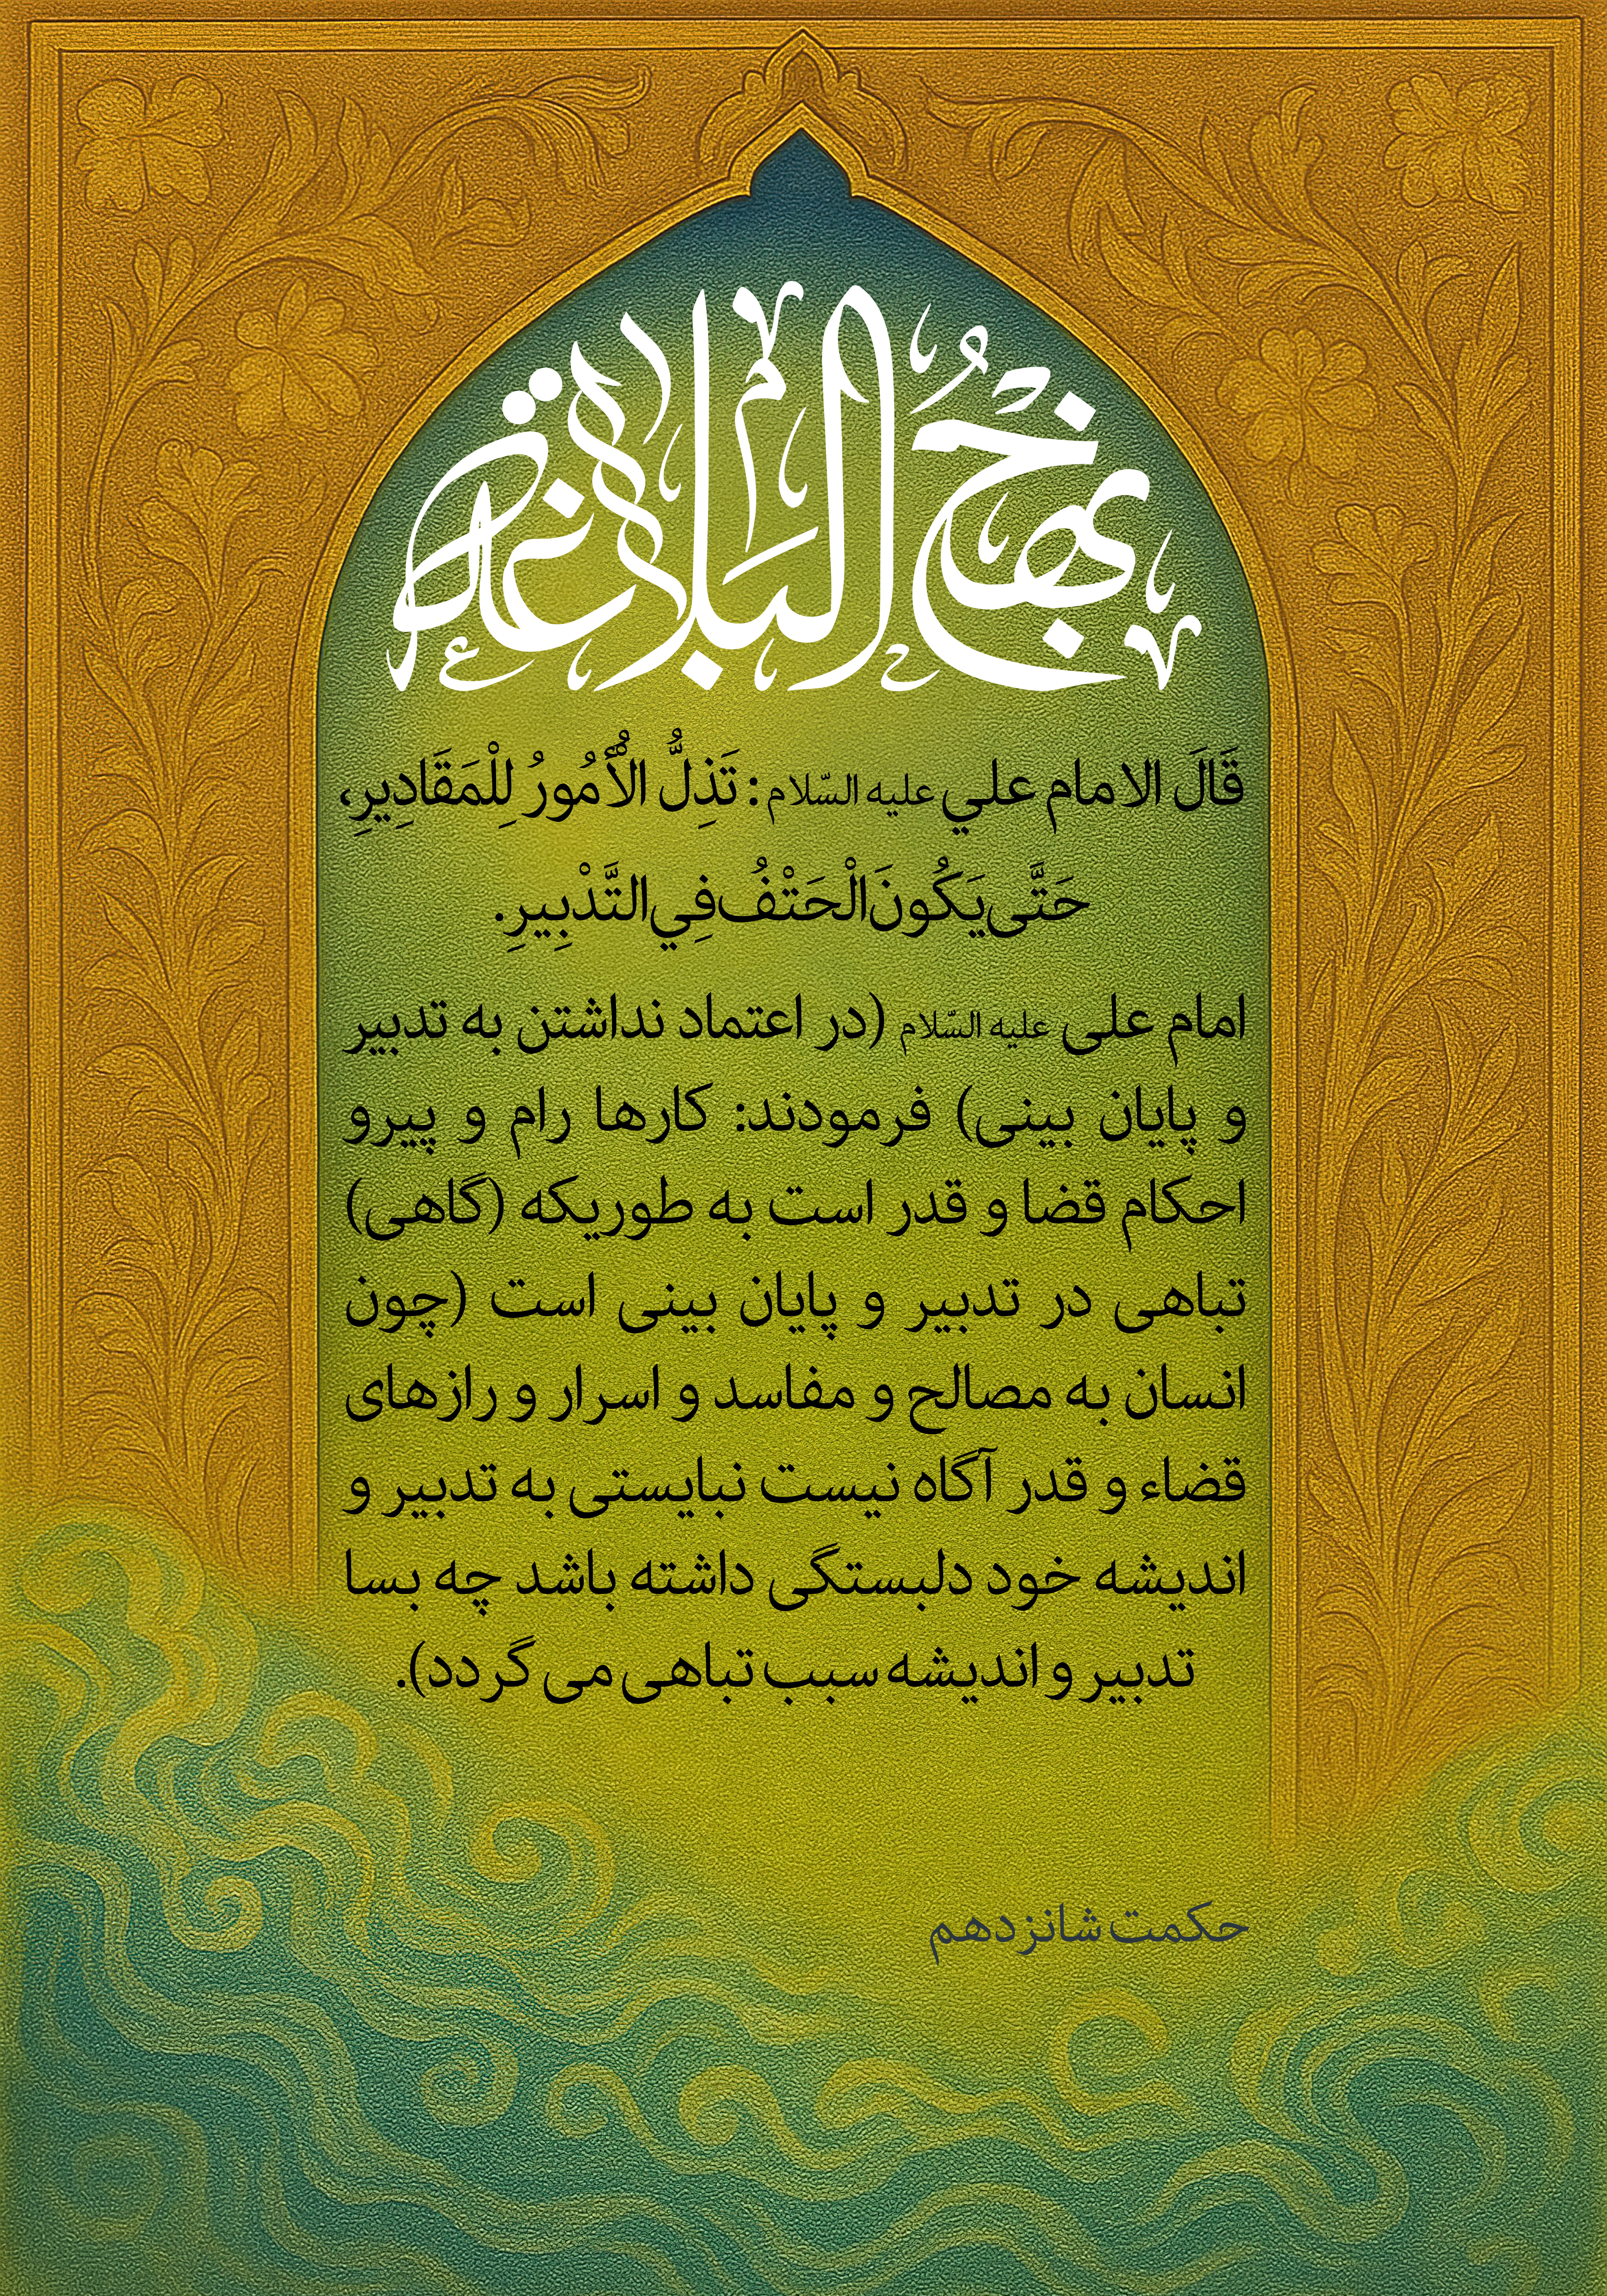 نهج البلاغة
قَالَ الامام علي علیه السّلام: تَذِلُّ الْأُمُورُ لِلْمَقَادِيرِ،
حَتَّى يَكُونَ الْحَتْفُ فِي التَّدْبِيرِ.
امام علی علیه السّلام (در اعتماد نداشتن به تدبیر
و پایان بینی) فرمودند: کارها رام و پیرو
احکام قضا و قدر است به طوریکه (گاهی)
تباهی در تدبیر و پایان بینی است (چون
انسان به مصالح و مفاسد و اسرار و رازهای
قضاء و قدر آگاه نیست نبایستی به تدبیر و
اندیشه خود دلبستگی داشته باشد چه بسا
تدبیر و اندیشه سبب تباهی می گردد).
حکمت شانزدهم